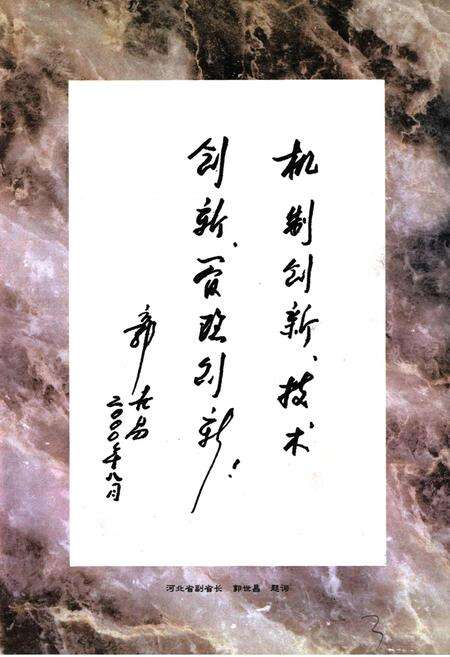 机制创新、技术
创新、管理创新！
郭世昌
二〇〇〇年八月
河北省副省长 郭世昌 题词
3